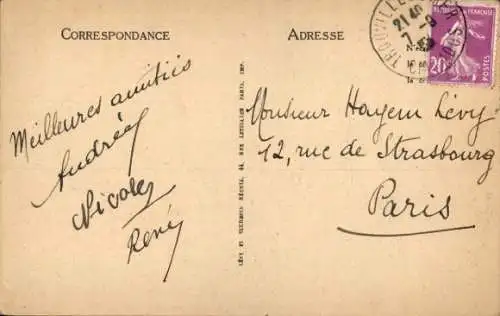 CORRESPONDANCE
ADRESSE
TROUVILLE
21 40
7 -9
20
POSTES
Meilleures amitiés
Andrée
Nicole
René
Monsieur Hayem Lévy
12, rue de Strasbourg
Paris
LÉVY ET NEURDEIN RÉUNIS, 44, RUE LETELLIER PARIS, IMP.